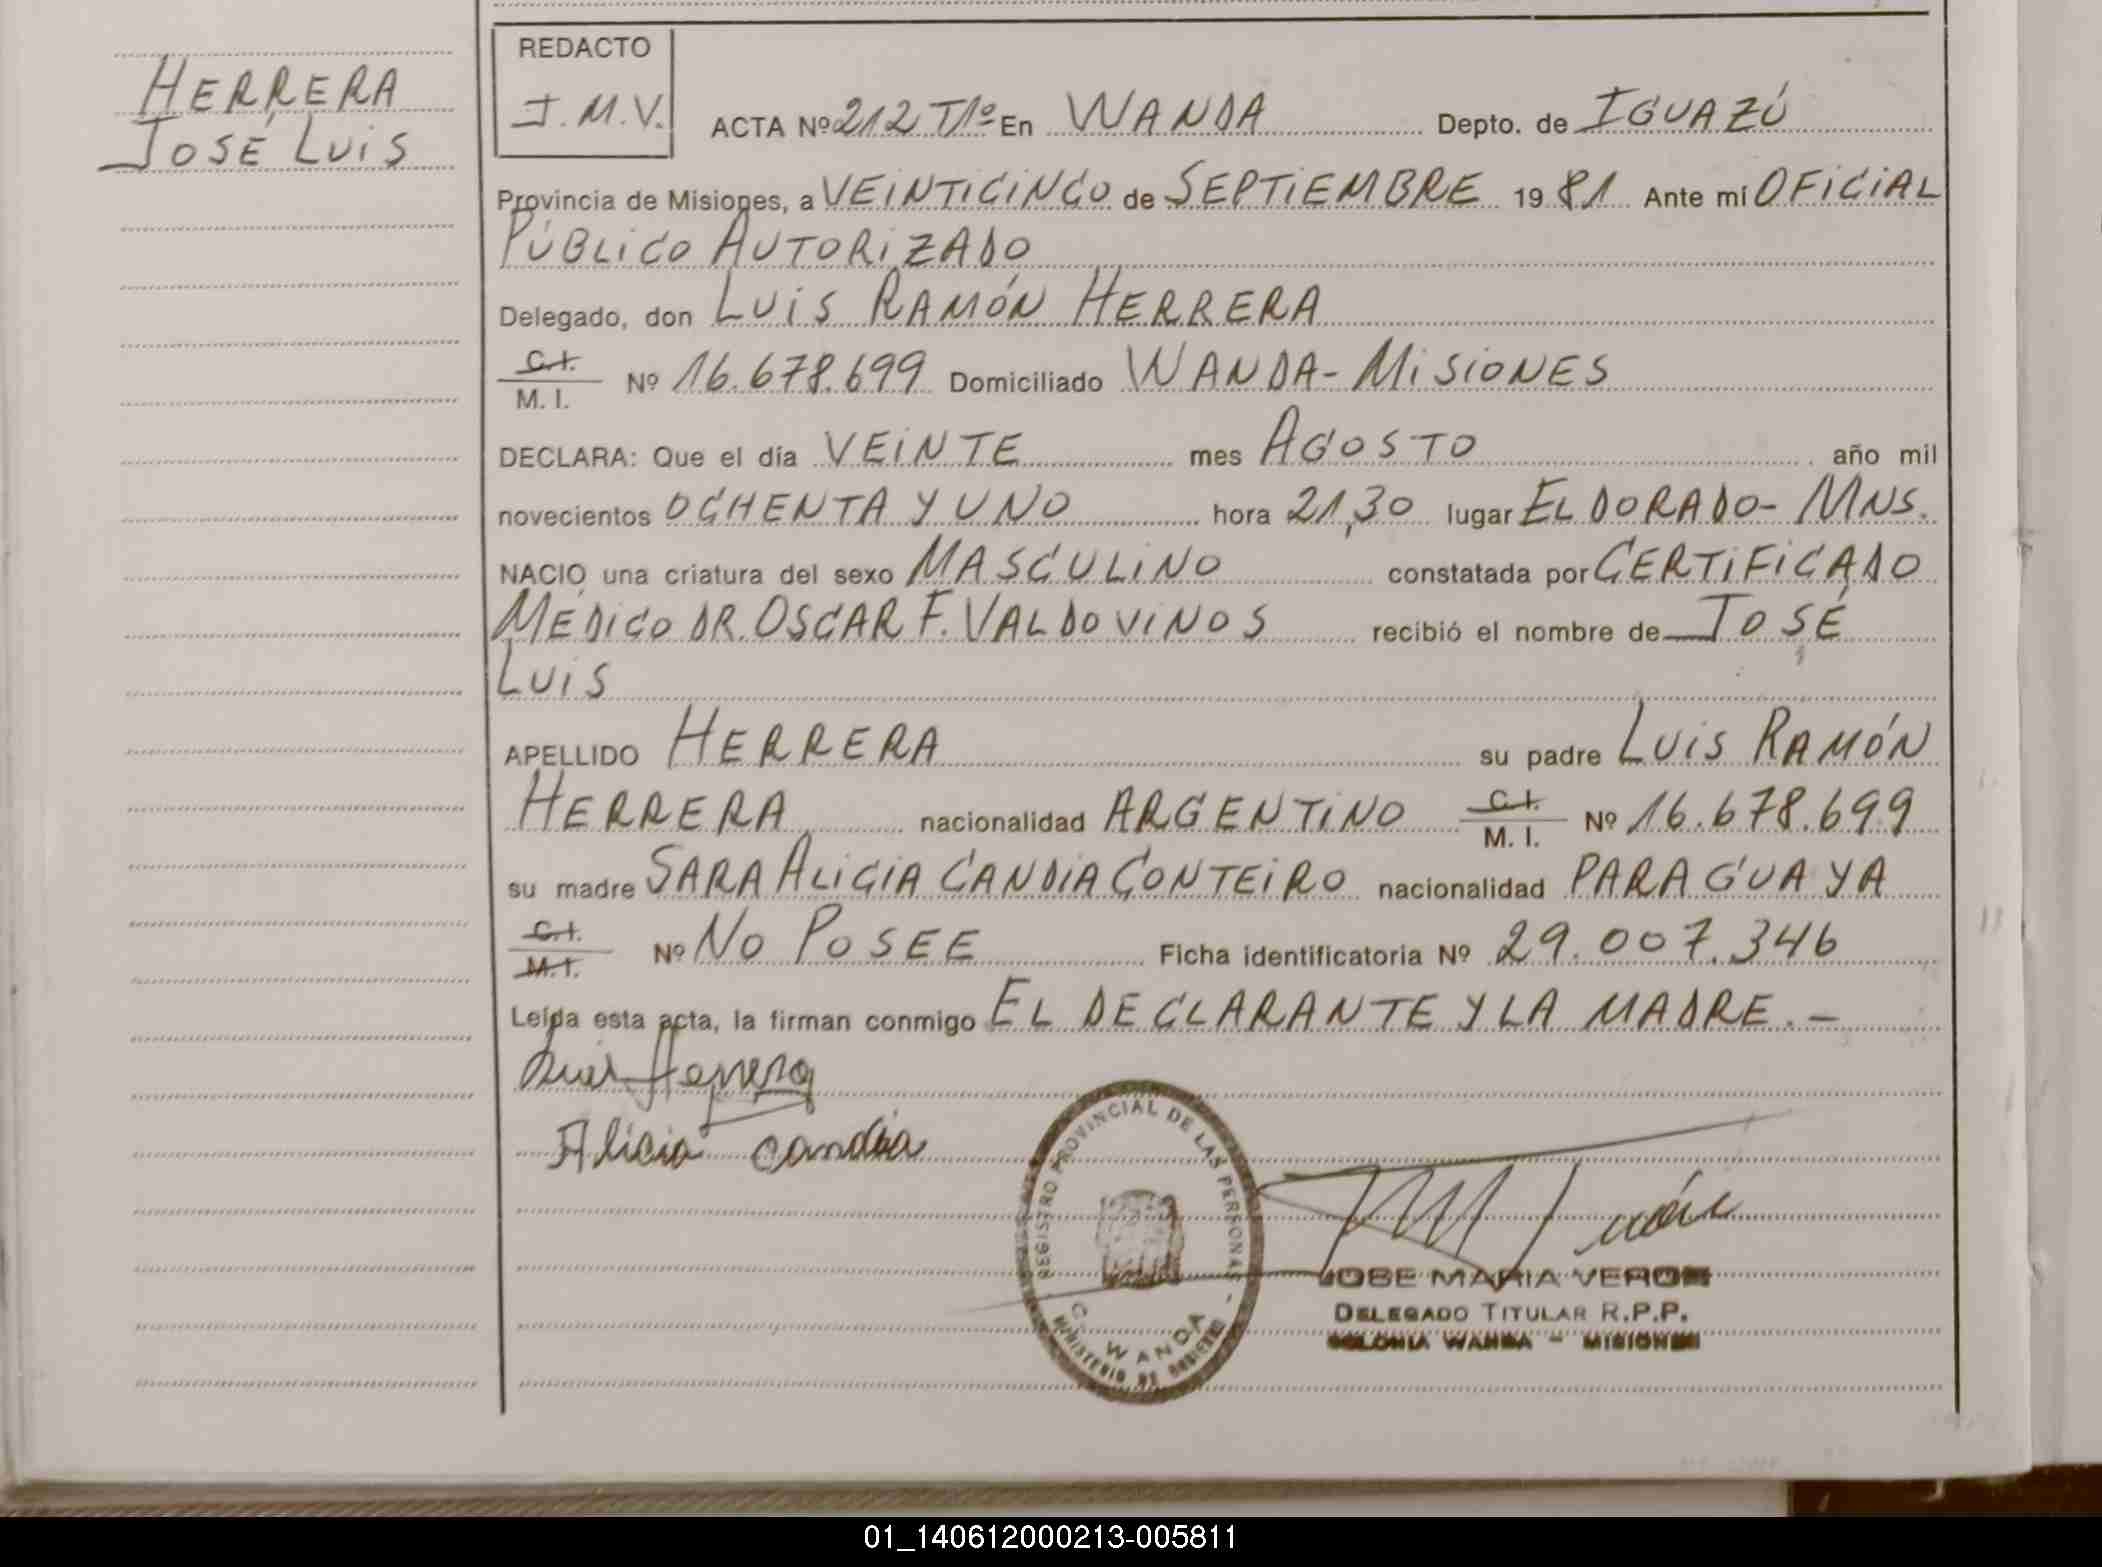 HERRERA
JOSÉ LUIS
REDACTO
J.M.V.
ACTA Nº 212 T1º En WANDA Depto. de IGUAZÚ
Provincia de Misiones, a VEINTICINCO de SEPTIEMBRE 1981 Ante mí OFICIAL
PÚBLICO AUTORIZADO
Delegado, don LUIS RAMÓN HERRERA
C.I.
M. I. Nº 16.678.699 Domiciliado WANDA-MISIONES
DECLARA: Que el día VEINTE mes AGOSTO año mil
novecientos OCHENTA Y UNO hora 21,30 lugar ELDORADO-MNS.
NACIO una criatura del sexo MASCULINO constatada por CERTIFICADO
MÉDICO DR. OSCAR F. VALDOVINOS recibió el nombre de JOSÉ
LUIS
APELLIDO HERRERA su padre LUIS RAMÓN
HERRERA nacionalidad ARGENTINO C.I. M. I. Nº 16.678.699
su madre SARA ALICIA CANDIA CONTEIRO nacionalidad PARAGUAYA
C.I.
M.I. Nº NO POSEE Ficha identificatoria Nº 29.007.346
Leída esta acta, la firman conmigo EL DECLARANTE Y LA MADRE.-
Luis Herrera
Alicia candia
REGISTRO PROVINCIAL DE LAS PERSONAS
C. WANDA
MINISTERIO DE GOBIERNO
JOSE MARIA VERON
DELEGADO TITULAR R.P.P.
COLONIA WANDA - MISIONES
01_140612000213-005811